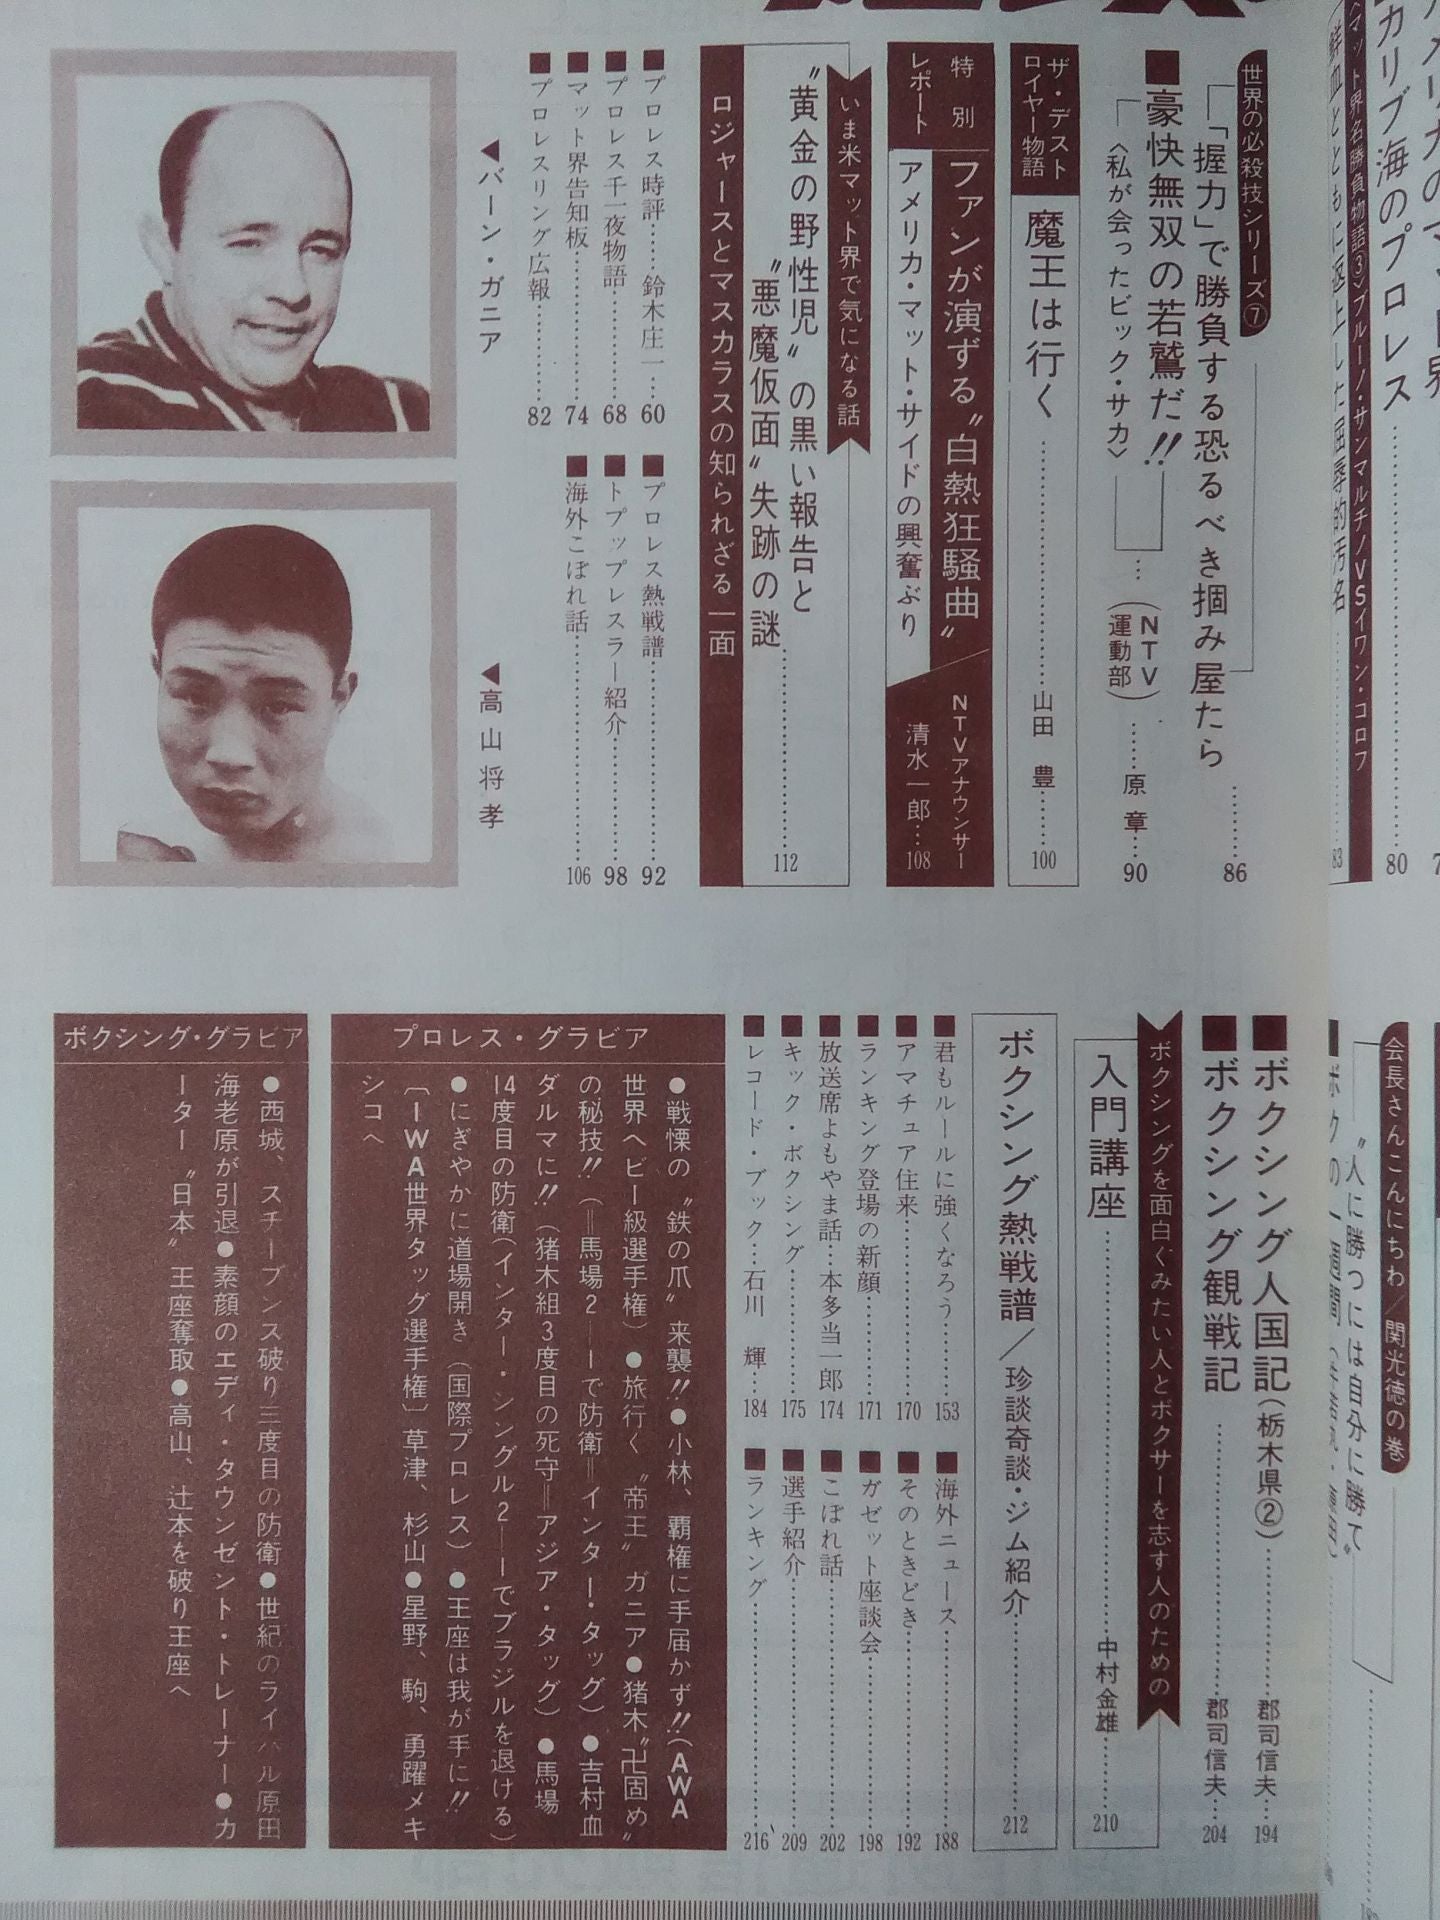 カリブ海のプロレス……80
〈マット界名勝負物語③〉ブルーノ・サンマルチノVSイワン・コロフ
鮮血とともに返上した屈辱的汚名……83
世界の必殺技シリーズ⑦
「握力」で勝負する恐るべき掴み屋たら……86
■豪快無双の若鷲だ!!
〈私が会ったビック・サカ〉…(NTV運動部)……原 章…90
ザ・デストロイヤー物語
魔王は行く……山田 豊……100
特別レポート
ファンが演ずる〝白熱狂騒曲〟
アメリカ・マット・サイドの興奮ぶり
NTVアナウンサー
清水一郎…108
いま米マット界で気になる話
〝黄金の野性児〟の黒い報告と
〝悪魔仮面〟失跡の謎……112
ロジャースとマスカラスの知られざる一面
■プロレス時評……鈴木庄一…60
■プロレス千一夜物語……68
■マット界告知板……74
■プロレスリング広報……82
■プロレス熱戦譜……92
■トップレスラー紹介……98
■海外こぼれ話……106
◀バーン・ガニア
◀高山将孝
会長さんこんにちわ／関光徳の巻
〝人に勝つには自分に勝て〟
■ボクシング人国記(栃木県②)……郡司信夫…194
■ボクシング観戦記……郡司信夫…204
ボクシングを面白くみたい人とボクサーを志す人のための
入門講座……中村金雄……210
ボクシング熱戦譜／珍談奇談・ジム紹介……212
■君もルールに強くなろう……153
■アマチュア往来……170
■ランキング登場の新顔……171
■放送席よもやま話…本多当一郎…174
■キック・ボクシング……175
■レコード・ブック…石川 輝…184
■海外ニュース……188
■そのときどき……192
■ガゼット座談会……198
■こぼれ話……202
■選手紹介……209
■ランキング……216
プロレス・グラビア
●戦慄の〝鉄の爪〟来襲!!●小林、覇権に手届かず!!(AWA
世界ヘビー級選手権)●旅行く〝帝王〟ガニア●猪木〝卍固め〟
の秘技!!(＝馬場2—1で防衛＝インター・タッグ)●吉村血
ダルマに!!(猪木組3度目の死守＝アジア・タッグ)●馬場
14度目の防衛(インター・シングル2—1でブラジルを退ける)
●にぎやかに道場開き(国際プロレス)●王座は我が手に!!
〔IWA世界タッグ選手権〕草津、杉山●星野、駒、勇躍メキ
シコへ
ボクシング・グラビア
●西城、スチーブンス破り三度目の防衛●世紀のライバル原田
海老原が引退●素顔のエディ・タウンゼント・トレーナー●カ
ーター〝日本〟王座奪取●高山、辻本を破り王座へ